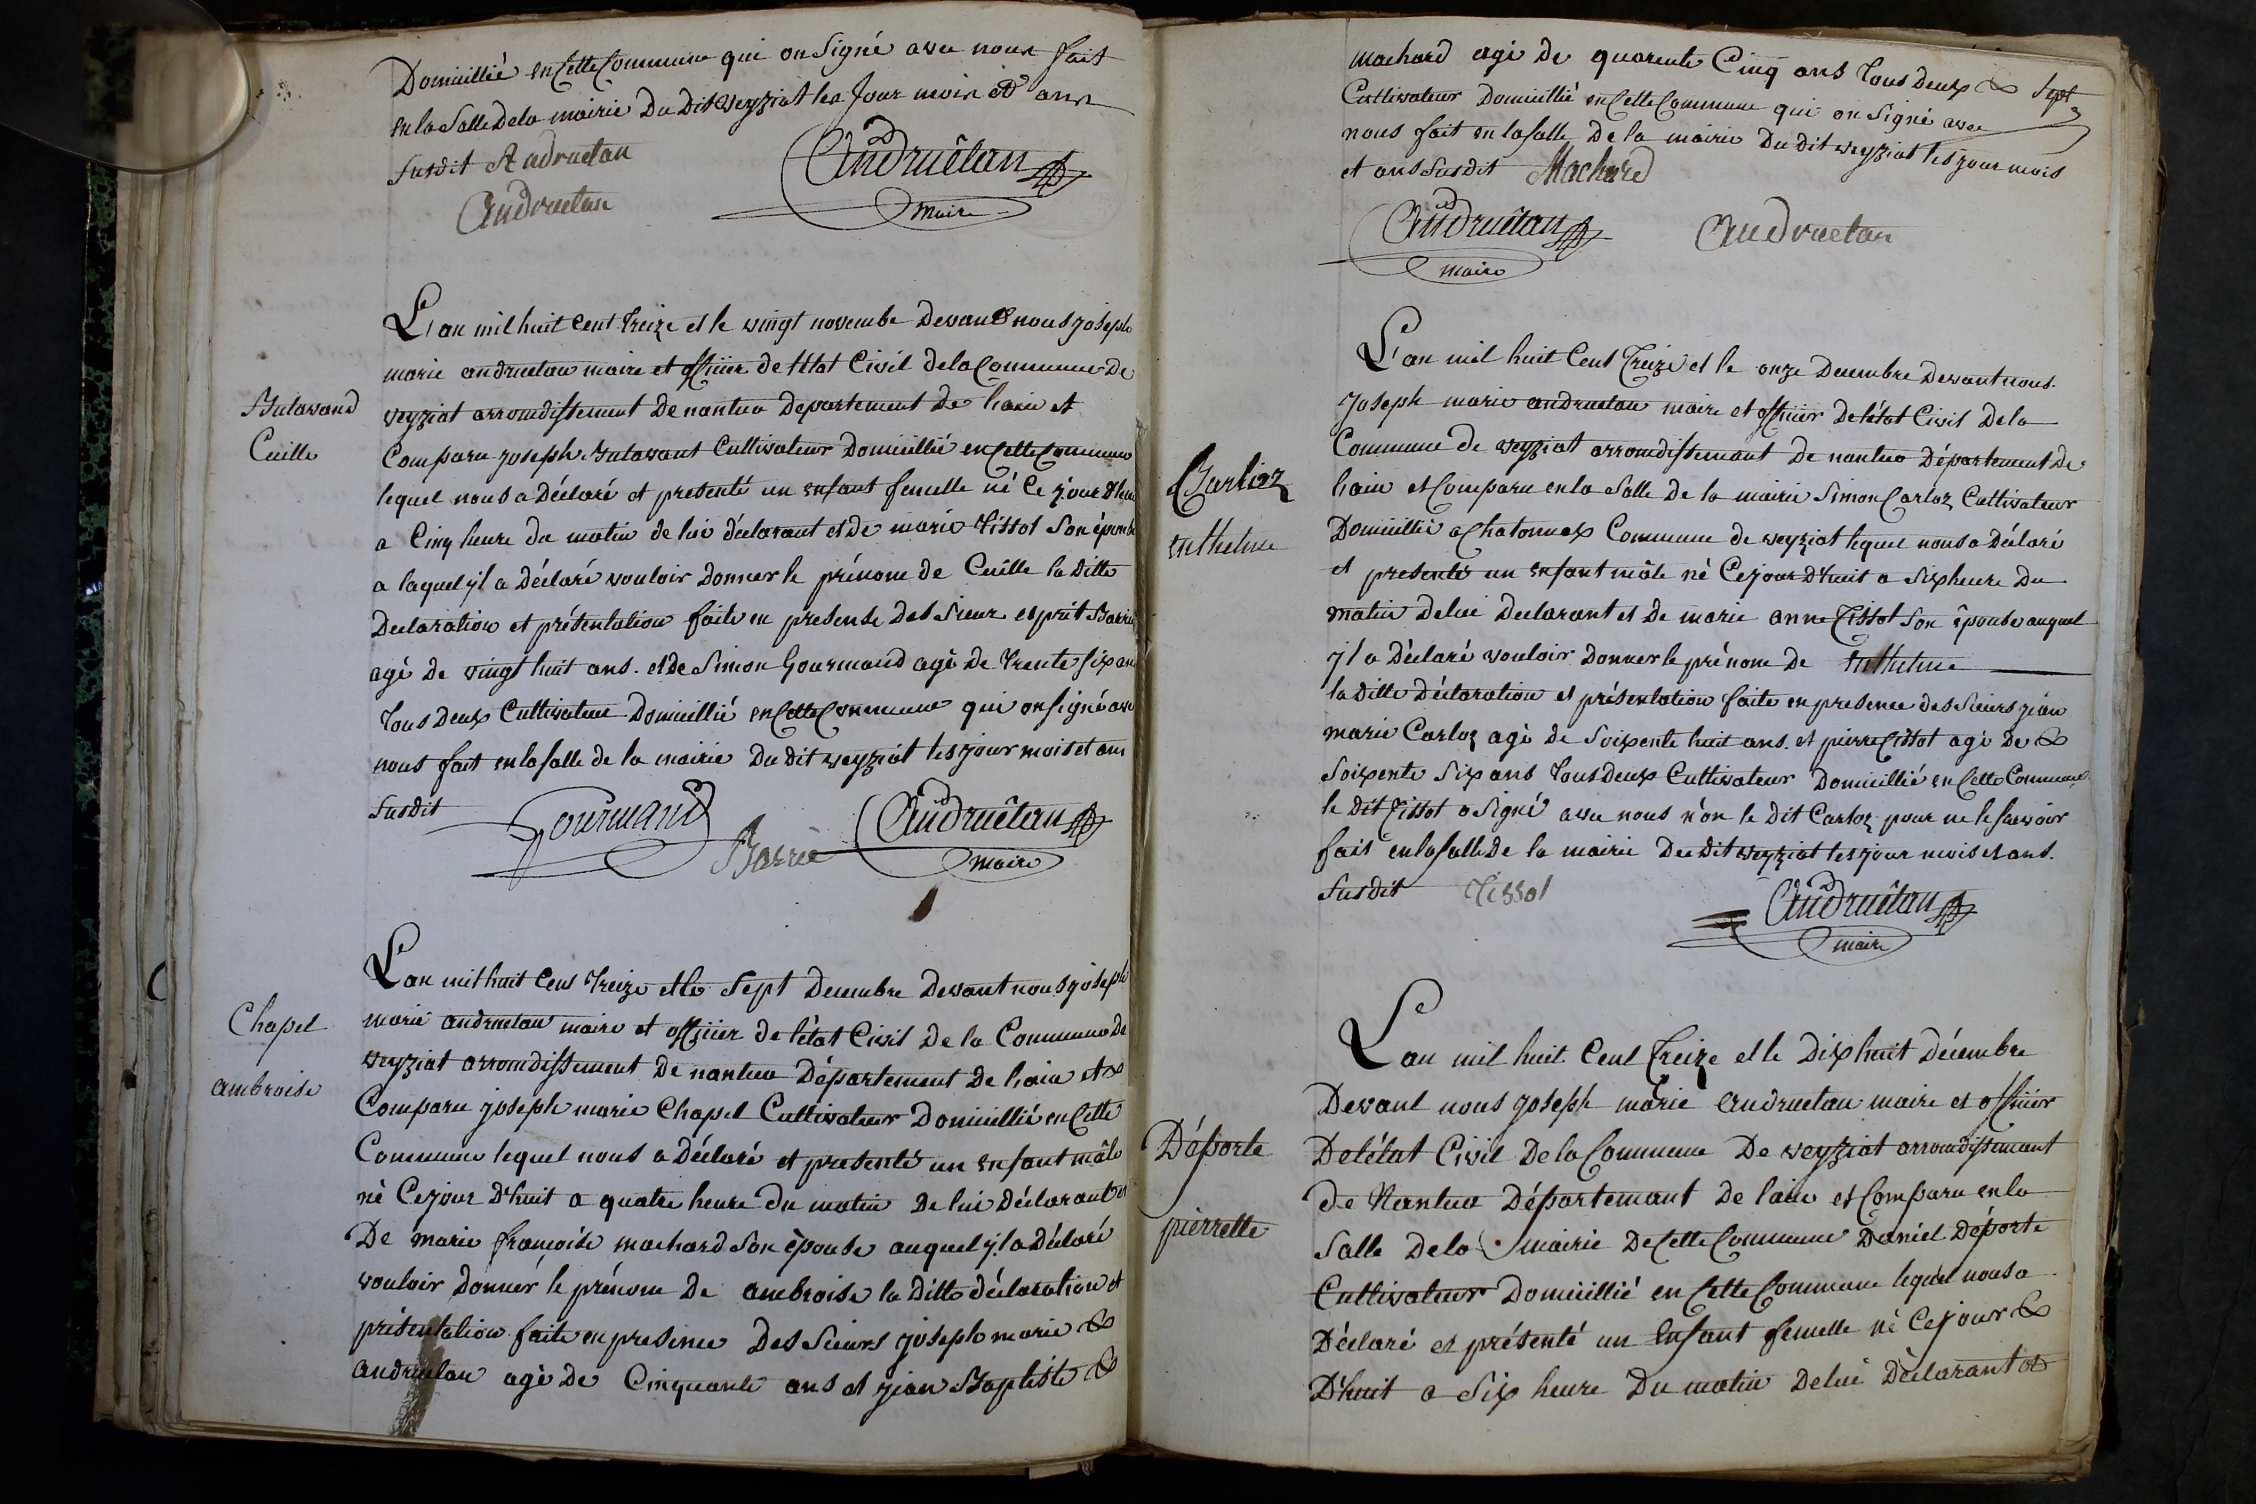 Domicillié en Cette Commune qui on Signé avec nous fait
en la Salle de la mairie Du Dit Veyziat les Jour mois et ans
susdit Andruetan
Andruetan
Andruétan
maire
L'an mil huit Cent treize et le vingt novembe Devant nous joseph
marie andruetan maire et officier de l'état Civil de la Commune De
veyziat arromdissement De nantua Departement de lain et
Butavand
Comparu joseph Butavant Cultivateur Domicillié en Cette Commune
Cuille
lequel nous a Déclaré et presenté un enfant femelle né Ce jour d'hui
a Cinq heure du matin de lui déclarant et de marie tissot Son épouse
a laquel yl a Déclaré vouloir Donner le prénom de Cuille la Ditte
Declaration et présentation faite en presense des Sieur esprit Barrie
agé de vingt huit ans. et de Simon Gourmand agé de trente six ans
tous Deux Cultivateur Domicillié en Cette Commune qui on signé avec
nous fait en la salle de la mairie Du dit veyziat les jour mois et ans
susdit
Gourmand
Barrie
Andruétan
maire
L'an mil huit Cent treize et le Sept Decembre Devant nous joseph
Chapel
marie andruetan maire et officier de l'état Civil de la Commune de
veyziat arromdissement De nantua Département De lain et
ambroise
Comparu joseph marie Chapel Cultivateur Domicillié en Cette
Commune lequel nous a Déclaré et presenté un enfant mâle
né Ce jour D'huit a quatre heure du matin De lui Déclarant et
De marie françoise machard Son épouse auquel yl a Déclaré
vouloir donner le prénom De ambroise la Ditte déclaration et
présentation faite en presence Des Sieurs joseph marie
andruetan agé De Cinquante ans et jean Baptiste
machard agé De quarente Cinq ans tous Deux
Sept
Cultivateur Domicillié en Cette Commune qui on Signé avec
nous fait en la salle De la mairie Du dit veyziat les jour mois
et ans Susdit Machard
Andruétan
maire
Andruetan
L'an mil huit Cent treize et le onze Decembre Devant nous
joseph marie andruetan maire et officier De l'état Civil De la
Commune de veyziat arromdissemant De nantua Département De
Carlioz
lain et Comparu en la Salle De la mairie Simon Carloz Cultivateur
enthelme
Domicillié a Chatonnax Commune de veyziat lequel nous a Déclaré
et presenté un enfant mâle né Ce jour D'huit a Six heure Du
matin De lui Declarant et De marie anne Tissot Son épouse auquel
yl a Déclaré vouloir Donner le prénom De enthelme
la Ditte Déclaration et présentation faite en presence des Sieurs jean
marie Carloz agé de Soixente huit ans. et pierre tissot agé De
Soixente Six ans tous Deux Cultivateur Domicillié en Cette Commune
le Dit Tissot a Signé avec nous n'on le Dit Carloz pour ne le savoir
fait en la salle De la mairie Du Dit veyziat les jour mois et ans.
Susdit Tissot
Andruétan
maire
L'an mil huit Cent treize et le Dix huit Décembre
Devant nous joseph marie Andruetan maire et officier
Déporte
De l'état Civil De la Commune De veyziat arromdissemant
de Nantua Département De lain et Comparu en la
pierrette
Salle De la mairie De Cette Commune Daniel Déporte
Cultivateur Domicillié en Cette Commune lequel nous a
Déclaré et présenté un Enfant femelle né Ce jour
D'huit a Six heure Du matin De lui Déclarant et